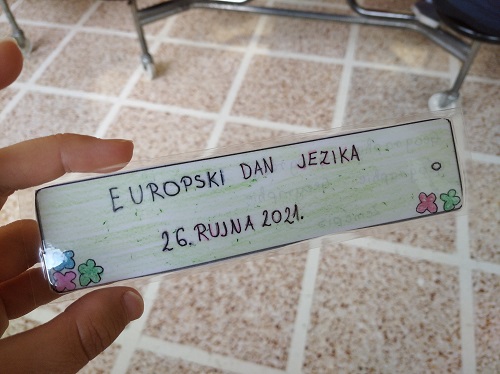 EUROPSKI DAN JEZIKA
26. RUJNA 2021.